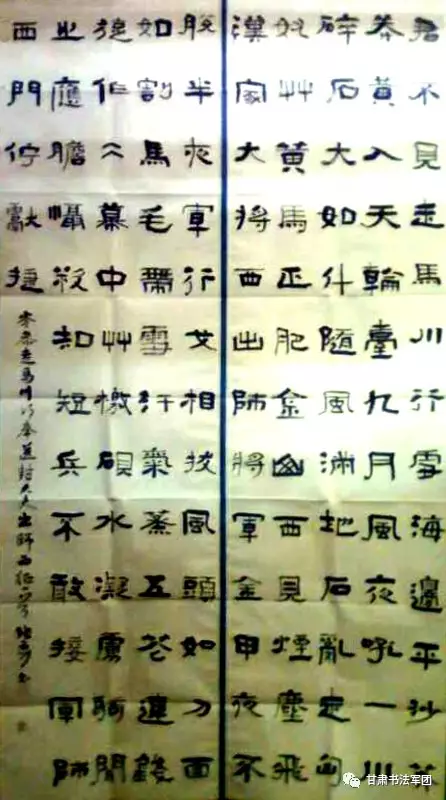 君不見走馬川行雪海邊平沙莽
莽黃入天輪臺九月風夜吼一川
碎石大如斗隨風滿地石亂走匈
奴艸黃馬正肥金山西見煙塵飛
漢家大將西出師將軍金甲夜不
脫半夜軍行戈相撥風頭如刀面
如割馬毛帶雪汗氣蒸五花連錢
旋作仌幕中艸檄硯水凝虜騎聞
之應膽懾料知短兵不敢接軍師
西門佇獻捷
岑參走馬川行奉送封大夫出師西征
甘肃书法军团